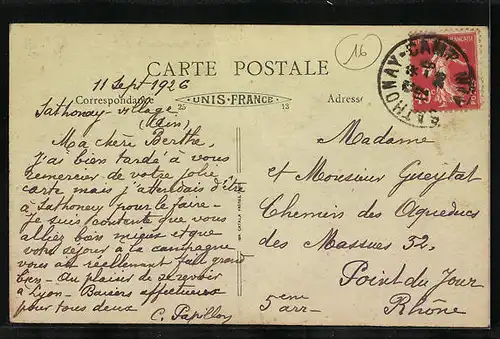 16
CARTE POSTALE
11 Sept 1926
Correspondance
UNIS-FRANCE
25
13
Adresse
SATHONAY-CAMP
AIN
Sathonay-village
(Ain)
Ma chère Berthe,
J'ai bien tardé à vous
remercier de votre jolie
carte mais j'attendais d'être
à Sathonay pour le faire -
Je suis contente que vous
alliez bien mieux et que
votre séjour à la campagne
vous ait réellement fait grand
bien - Au plaisir de se revoir
à Lyon - Baisers affectueux
pour tous deux
C. Papillon
Madame
et Monsieur Gueytat
Chemin des Aqueducs
des Massues 52.
Point du Jour
5eme arr-
Rhône